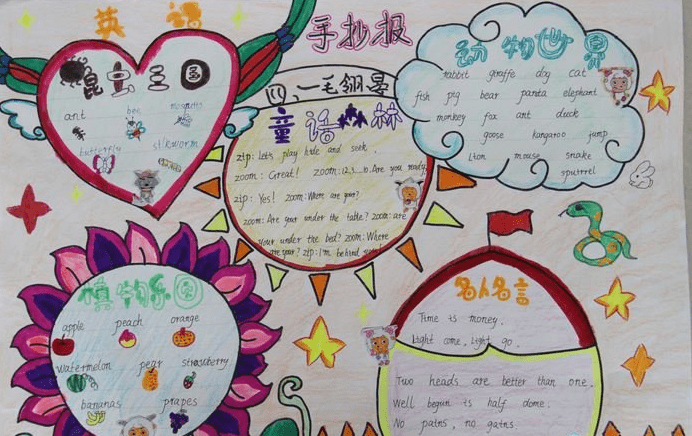 英语
手抄报
昆虫王国
ant bee mosquito
butterfly silkworm
童话森林
zip: Let's play hide and seek.
zoom: Great! zoom: 1.2.3...10. Are you ready
zip: Yes! zoom: Where are you?
zoom: Are your under the table? zoom: are
your under the bed? zoom: Where
are your? zip: I'm behind
动物世界
rabbit giraffe dog cat
fish pig bear panta elephant
monkey fox ant duck
goose kangaroo jump
Lion mouse snake
植物乐园
apple peach orange
watermelon pear strawberry
bananas grapes
名人名言
Time is money.
Light come, Light go.
Two heads are better than one.
Well begun is half done.
No pains, no gains